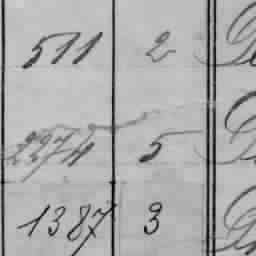 511 2
2274 5
1387 3